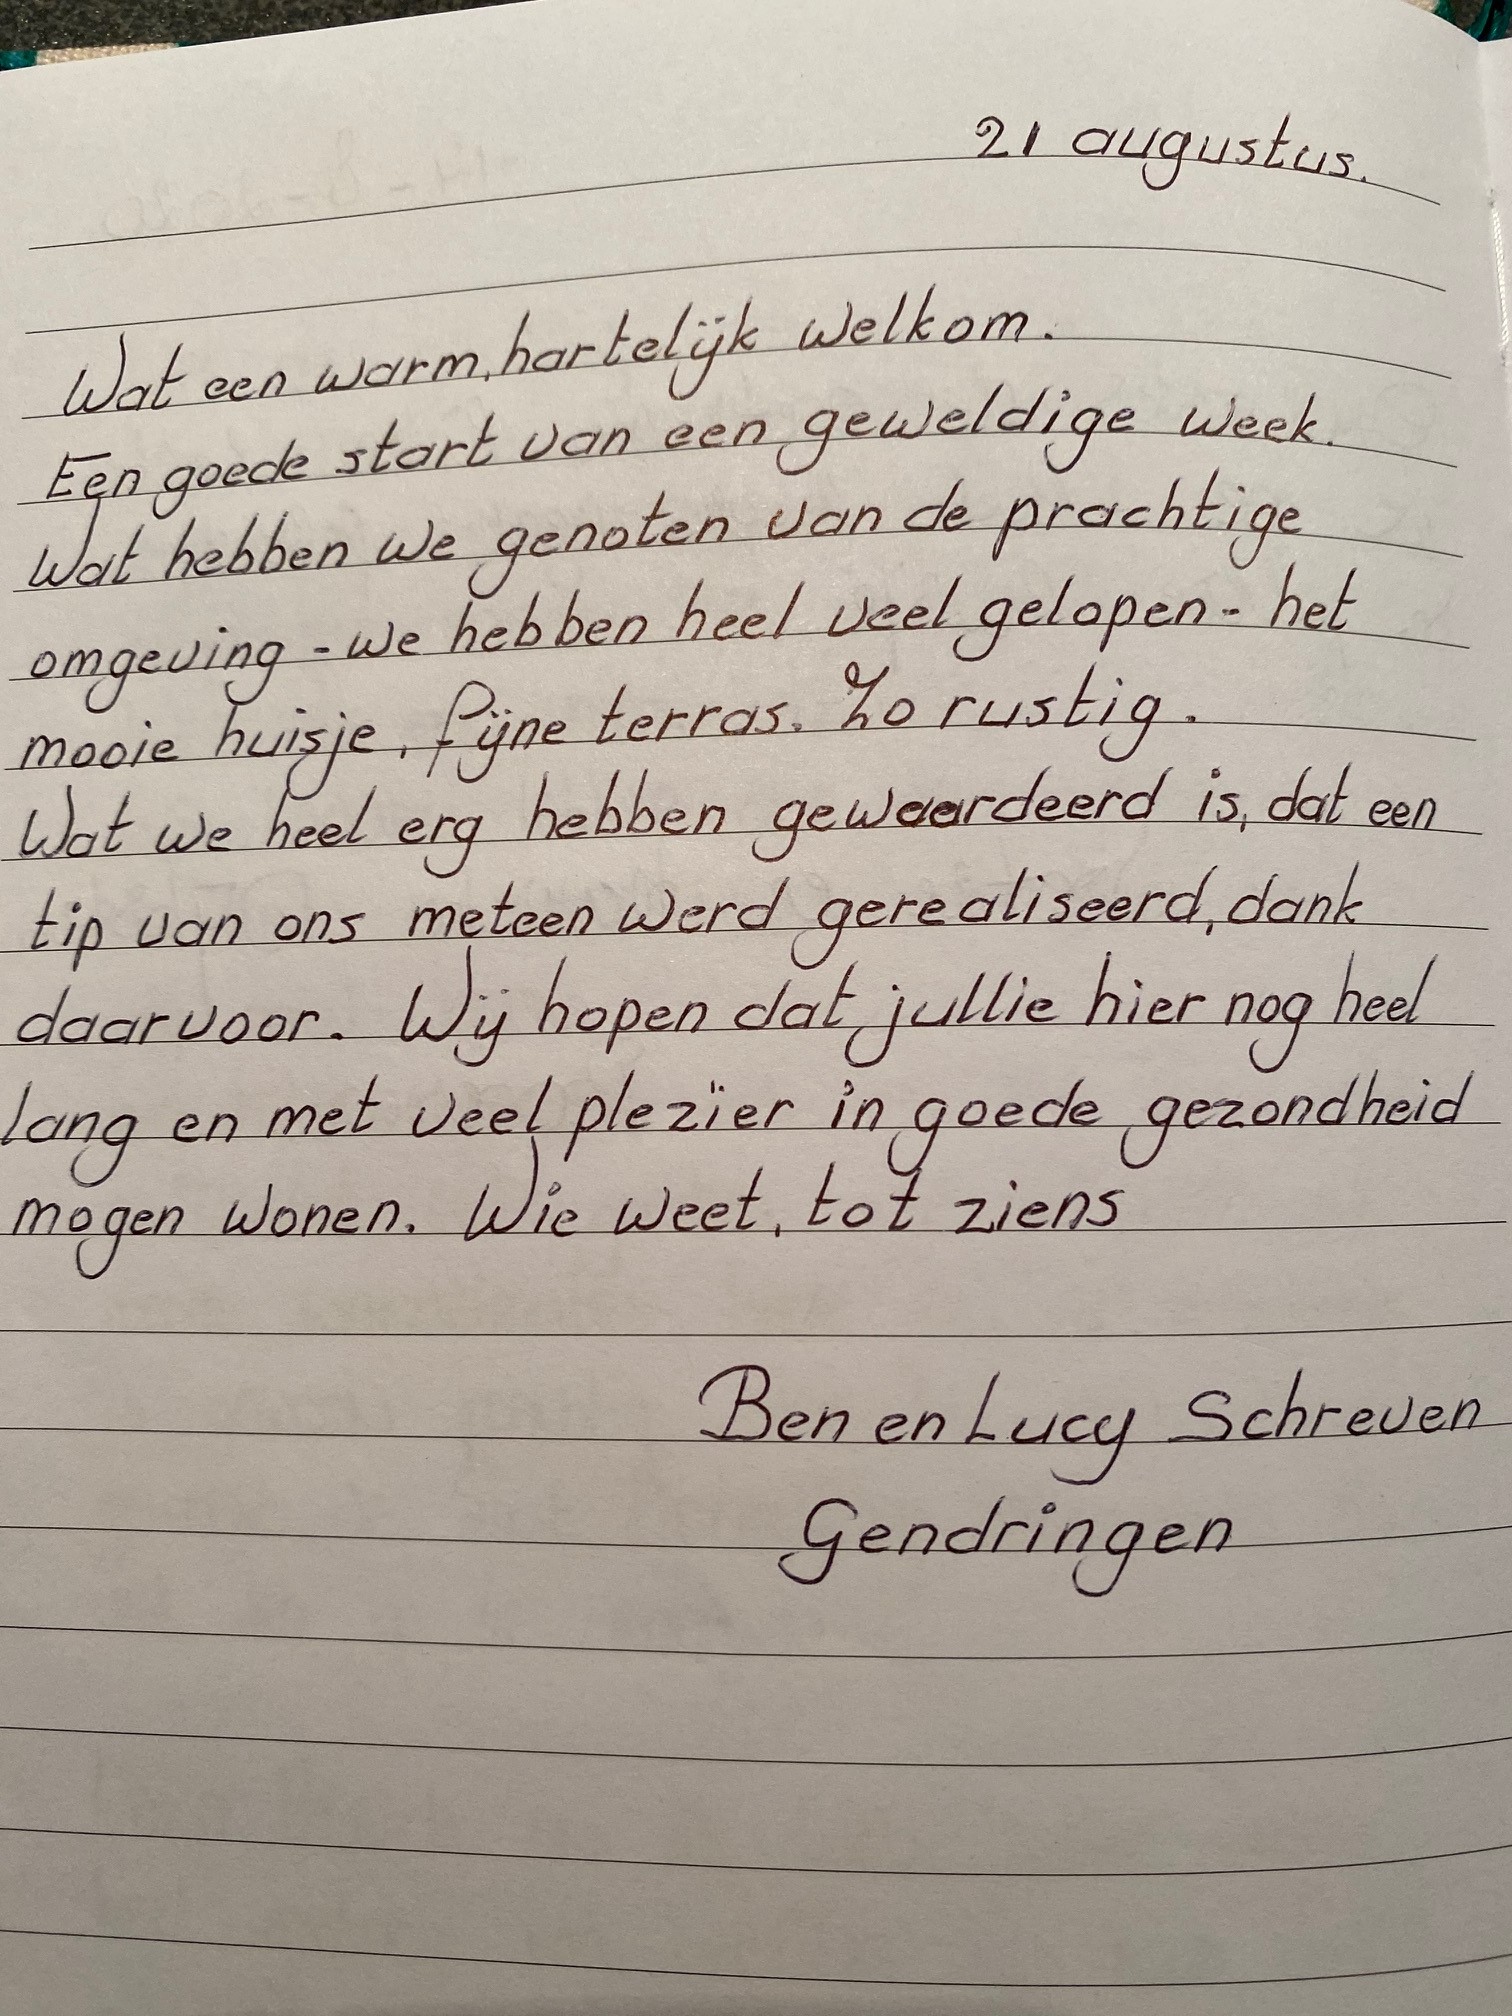 21 augustus.
Wat een warm, hartelijk welkom.
Een goede start van een geweldige week.
Wat hebben we genoten van de prachtige
omgeving - we hebben heel veel gelopen - het
mooie huisje, fijne terras. Zo rustig.
Wat we heel erg hebben gewaardeerd is, dat een
tip van ons meteen werd gerealiseerd, dank
daarvoor. Wij hopen dat jullie hier nog heel
lang en met veel plezïer in goede gezondheid
mogen wonen. Wie weet, tot ziens
Ben en Lucy Schreven
Gendringen